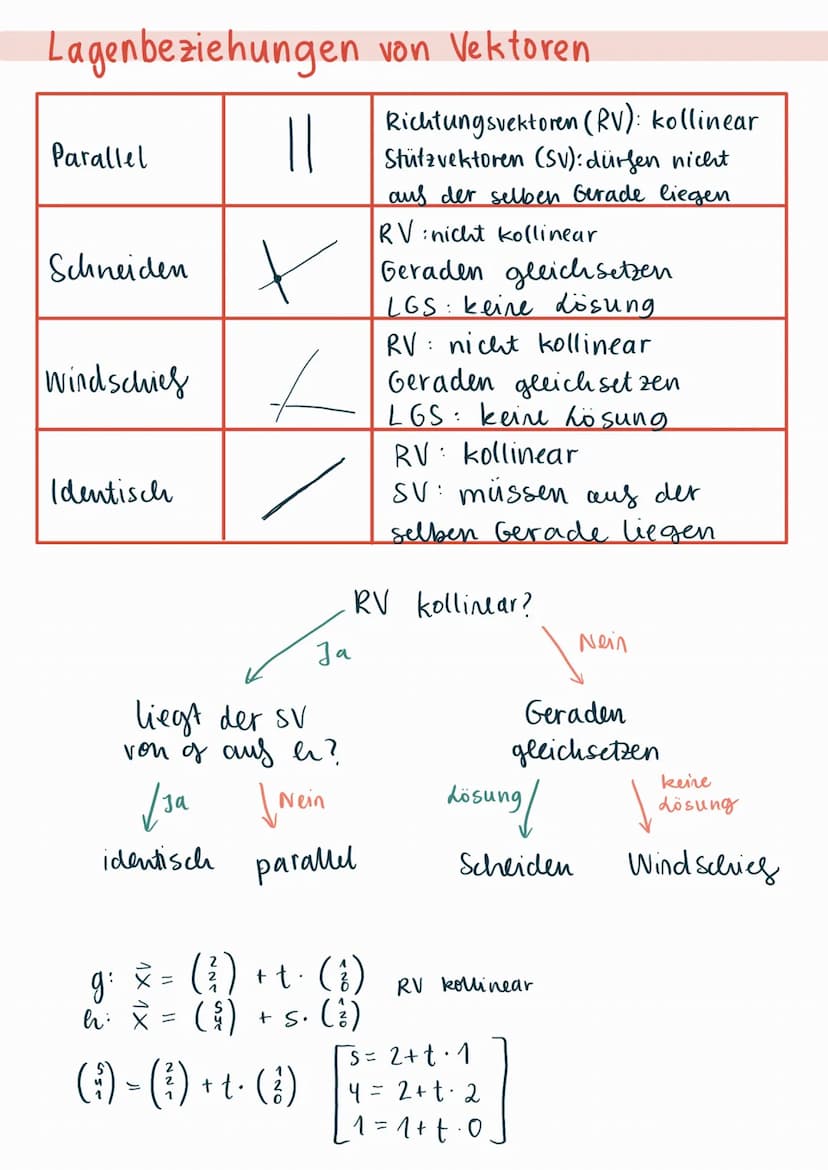 Lagenbeziehungen von Vektoren
Parallel
Richtungsvektoren (RV): kollinear
Stützvektoren (SV): dürfen nicht
auf der selben Gerade liegen
Schneiden
RV: nicht kollinear
Geraden gleichsetzen
LGS: keine Lösung
Windschief
RV: nicht kollinear
Geraden gleichsetzen
LGS: keine Lösung
Identisch
RV: kollinear
SV: müssen auf der
selben Gerade liegen
RV kollinear?
Ja
Nein
liegt der SV
von g auf h?
Geraden
gleichsetzen
Ja
Nein
Lösung
keine
Lösung
identisch
parallel
Scheiden
Windschief
g: x⃗ = (2 2 1) + t · (1 2 0) RV kollinear
h: x⃗ = (5 4 1) + s · (1 2 0)
(5 4 1) = (2 2 1) + t · (1 2 0)
5 = 2 + t · 1
4 = 2 + t · 2
1 = 1 + t · 0